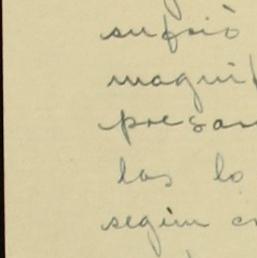 sufrió
maqui
presan
las lo
según